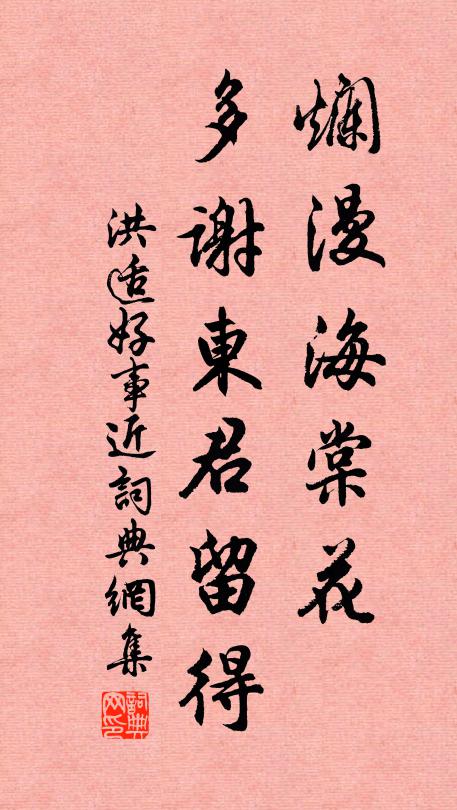 爛漫海棠花
多謝東君留得
洪适好事近詞典網集
詞典網印